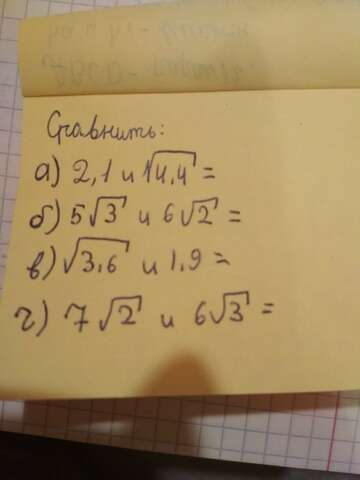 Сравнить:
а) 2,1 и √4,4 =
б) 5√3 и 6√2 =
в) √3,6 и 1,9 =
г) 7√2 и 6√3 =